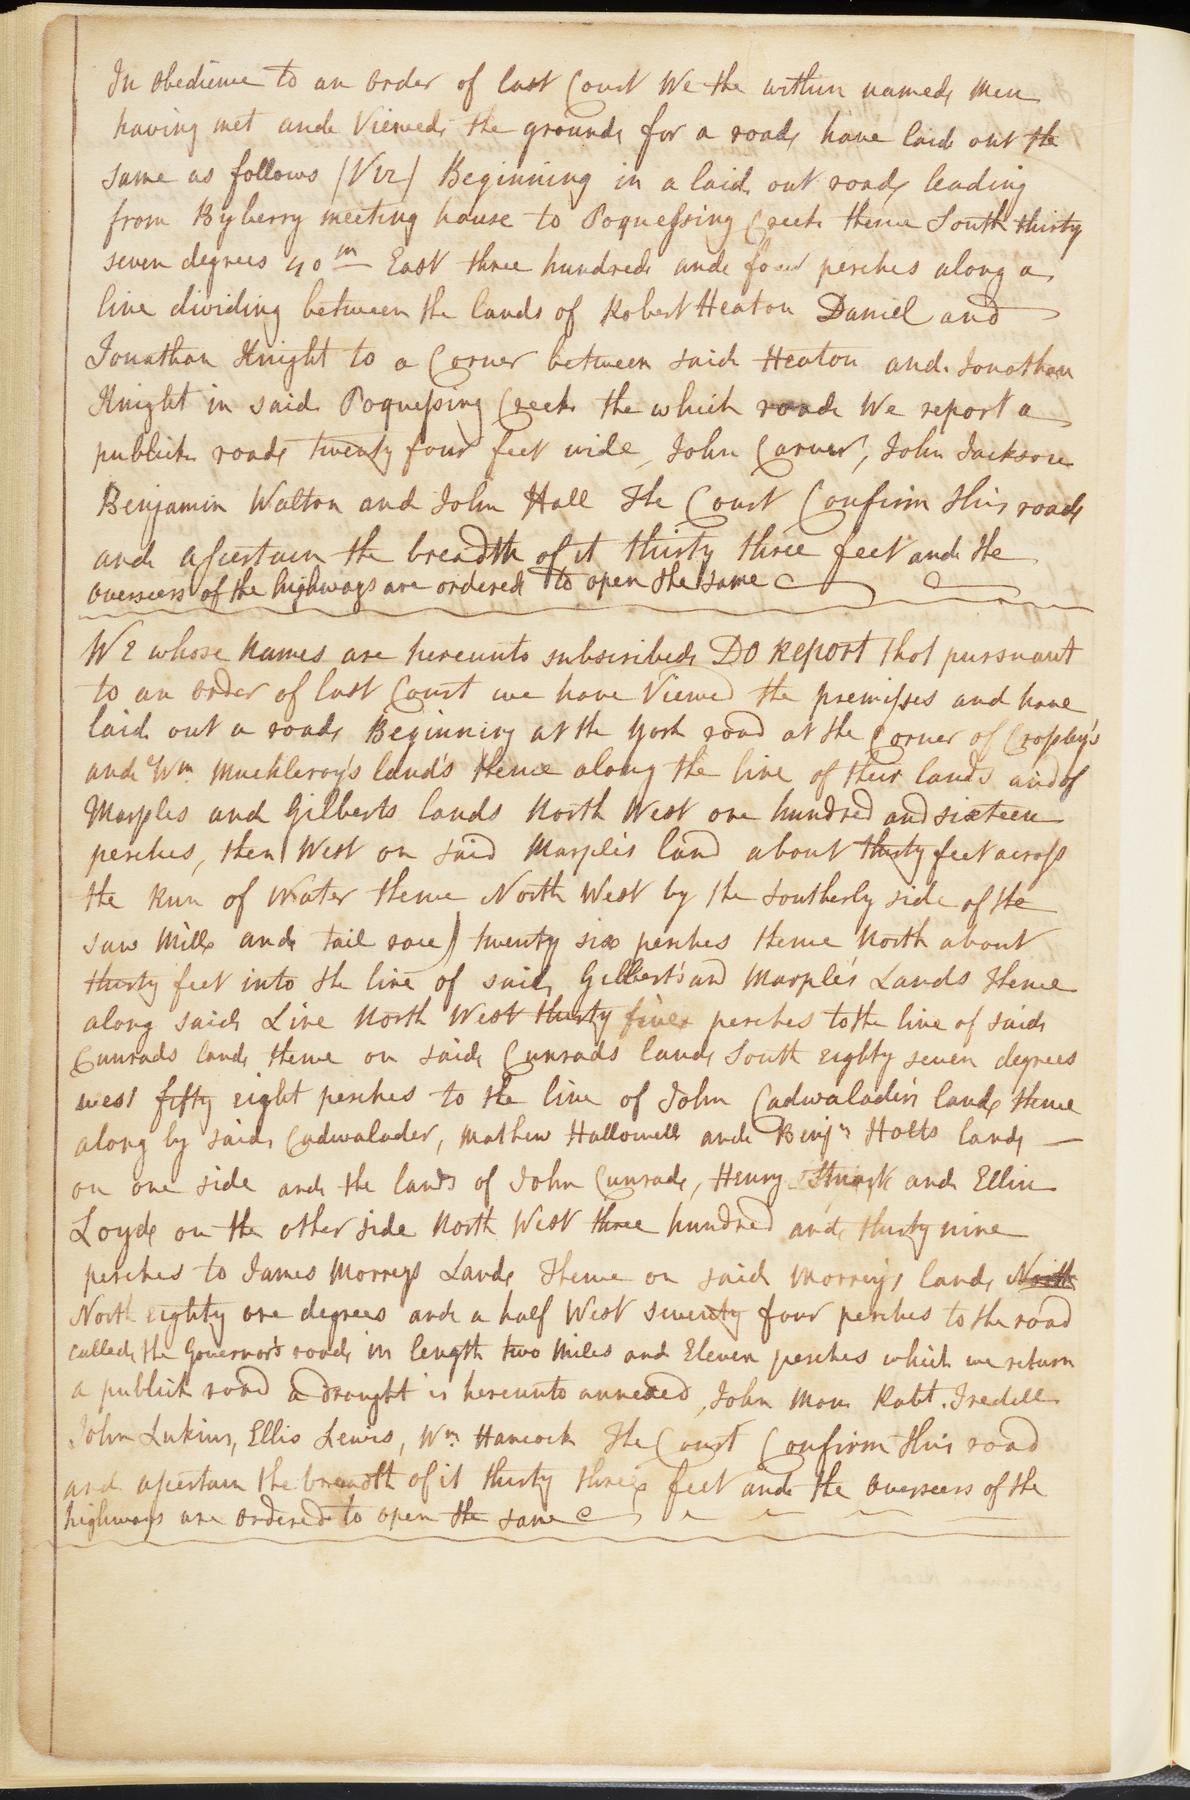 In Obedience to an Order of last Court We the within named Men
having met and Viewed the ground for a road have laid out the
same as follows (Viz) Beginning in a laid out road leading
from Byberry meeting house to Poquessing Creek thence South thirty
seven degrees 40 m East three hundred and four perches along a
line dividing between the lands of Robert Heaton Daniel and
Jonathan Knight to a Corner between said Heaton and Jonathan
Knight in said Poquessing Creek the which road We report a
publick road twenty four feet wide, John Carver, John Jackson
Benjamin Walton and John Hall The Court Confirm this road
and assertain the breadth of it thirty three feet and the
overseers of the highways are ordered to open the same
WE whose Names are hereunto subscribed DO Report that pursuant
to an order of last Court we have Viewed the premisses and have
laid out a road Beginning at the York road at the Corner of Cropley's
and Wm Muckleroy's land's thence along the line of their lands and of
Marples and Gilberts lands North West one hundred and sixteen
perches, then West on said Marple's land about thirty feet across
the Run of Water thence North West by the southerly side of the
saw Mill and tail race) twenty six perches thence North about
thirty feet into the line of said Gilbert's and Marple's Lands thence
along said Line North West thirty five perches to the line of said
Cunrads land thence on said Cunrads land South eighty seven degrees
west fifty eight perches to the line of John Cadwalader's land thence
along by said Cadwalader, Mathew Hallowell and Benjn Holts land
on one side and the lands of John Cunrad, Henry and Ellin
Loyd on the other side North West three hundred and thirty nine
perches to James Morreys Land Thence on said Morrey's land North
North eighty one degrees and a half West seventy four perches to the road
called the Governor's road in length two Miles and Eleven perches which we return
a publick road a draught is hereunto annexed, John Robt. Iredell
John Lukins, Ellis Lewis, Wm Hancock The Court Confirm this road
and assertain the breadth of it thirty three feet and the Overseers of the
highways are ordered to open the same